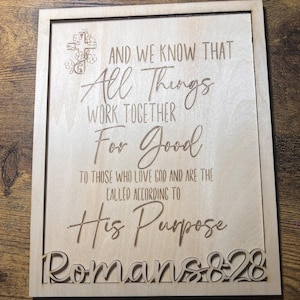 AND WE KNOW THAT
All Things
WORK TOGETHER
For Good
TO THOSE WHO LOVE GOD AND ARE THE
CALLED ACCORDING TO
His Purpose
Romans 8:28